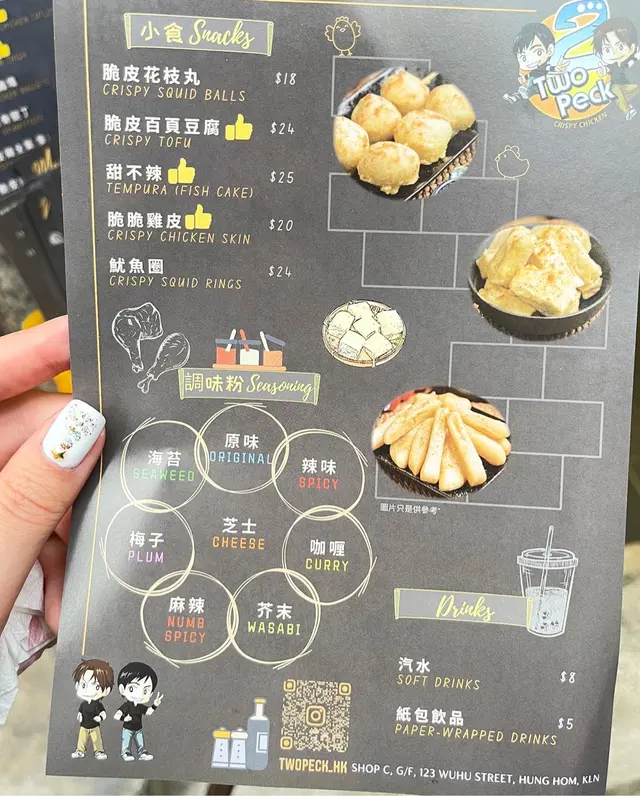 小食 Snacks
2
TWO
Peck
CRISPY CHICKEN
脆皮花枝丸 $18
CRISPY SQUID BALLS
脆皮百頁豆腐 $24
CRISPY TOFU
甜不辣 $25
TEMPURA (FISH CAKE)
脆脆雞皮 $20
CRISPY CHICKEN SKIN
魷魚圈 $24
CRISPY SQUID RINGS
調味粉 Seasoning
原味
ORIGINAL
海苔
SEAWEED
辣味
SPICY
梅子
PLUM
芝士
CHEESE
咖喱
CURRY
麻辣
NUMB
SPICY
芥末
WASABI
圖片只是供參考*
Drinks
汽水 $8
SOFT DRINKS
紙包飲品 $5
PAPER-WRAPPED DRINKS
TWOPECK_HK SHOP C, G/F, 123 WUHU STREET, HUNG HOM, KLN